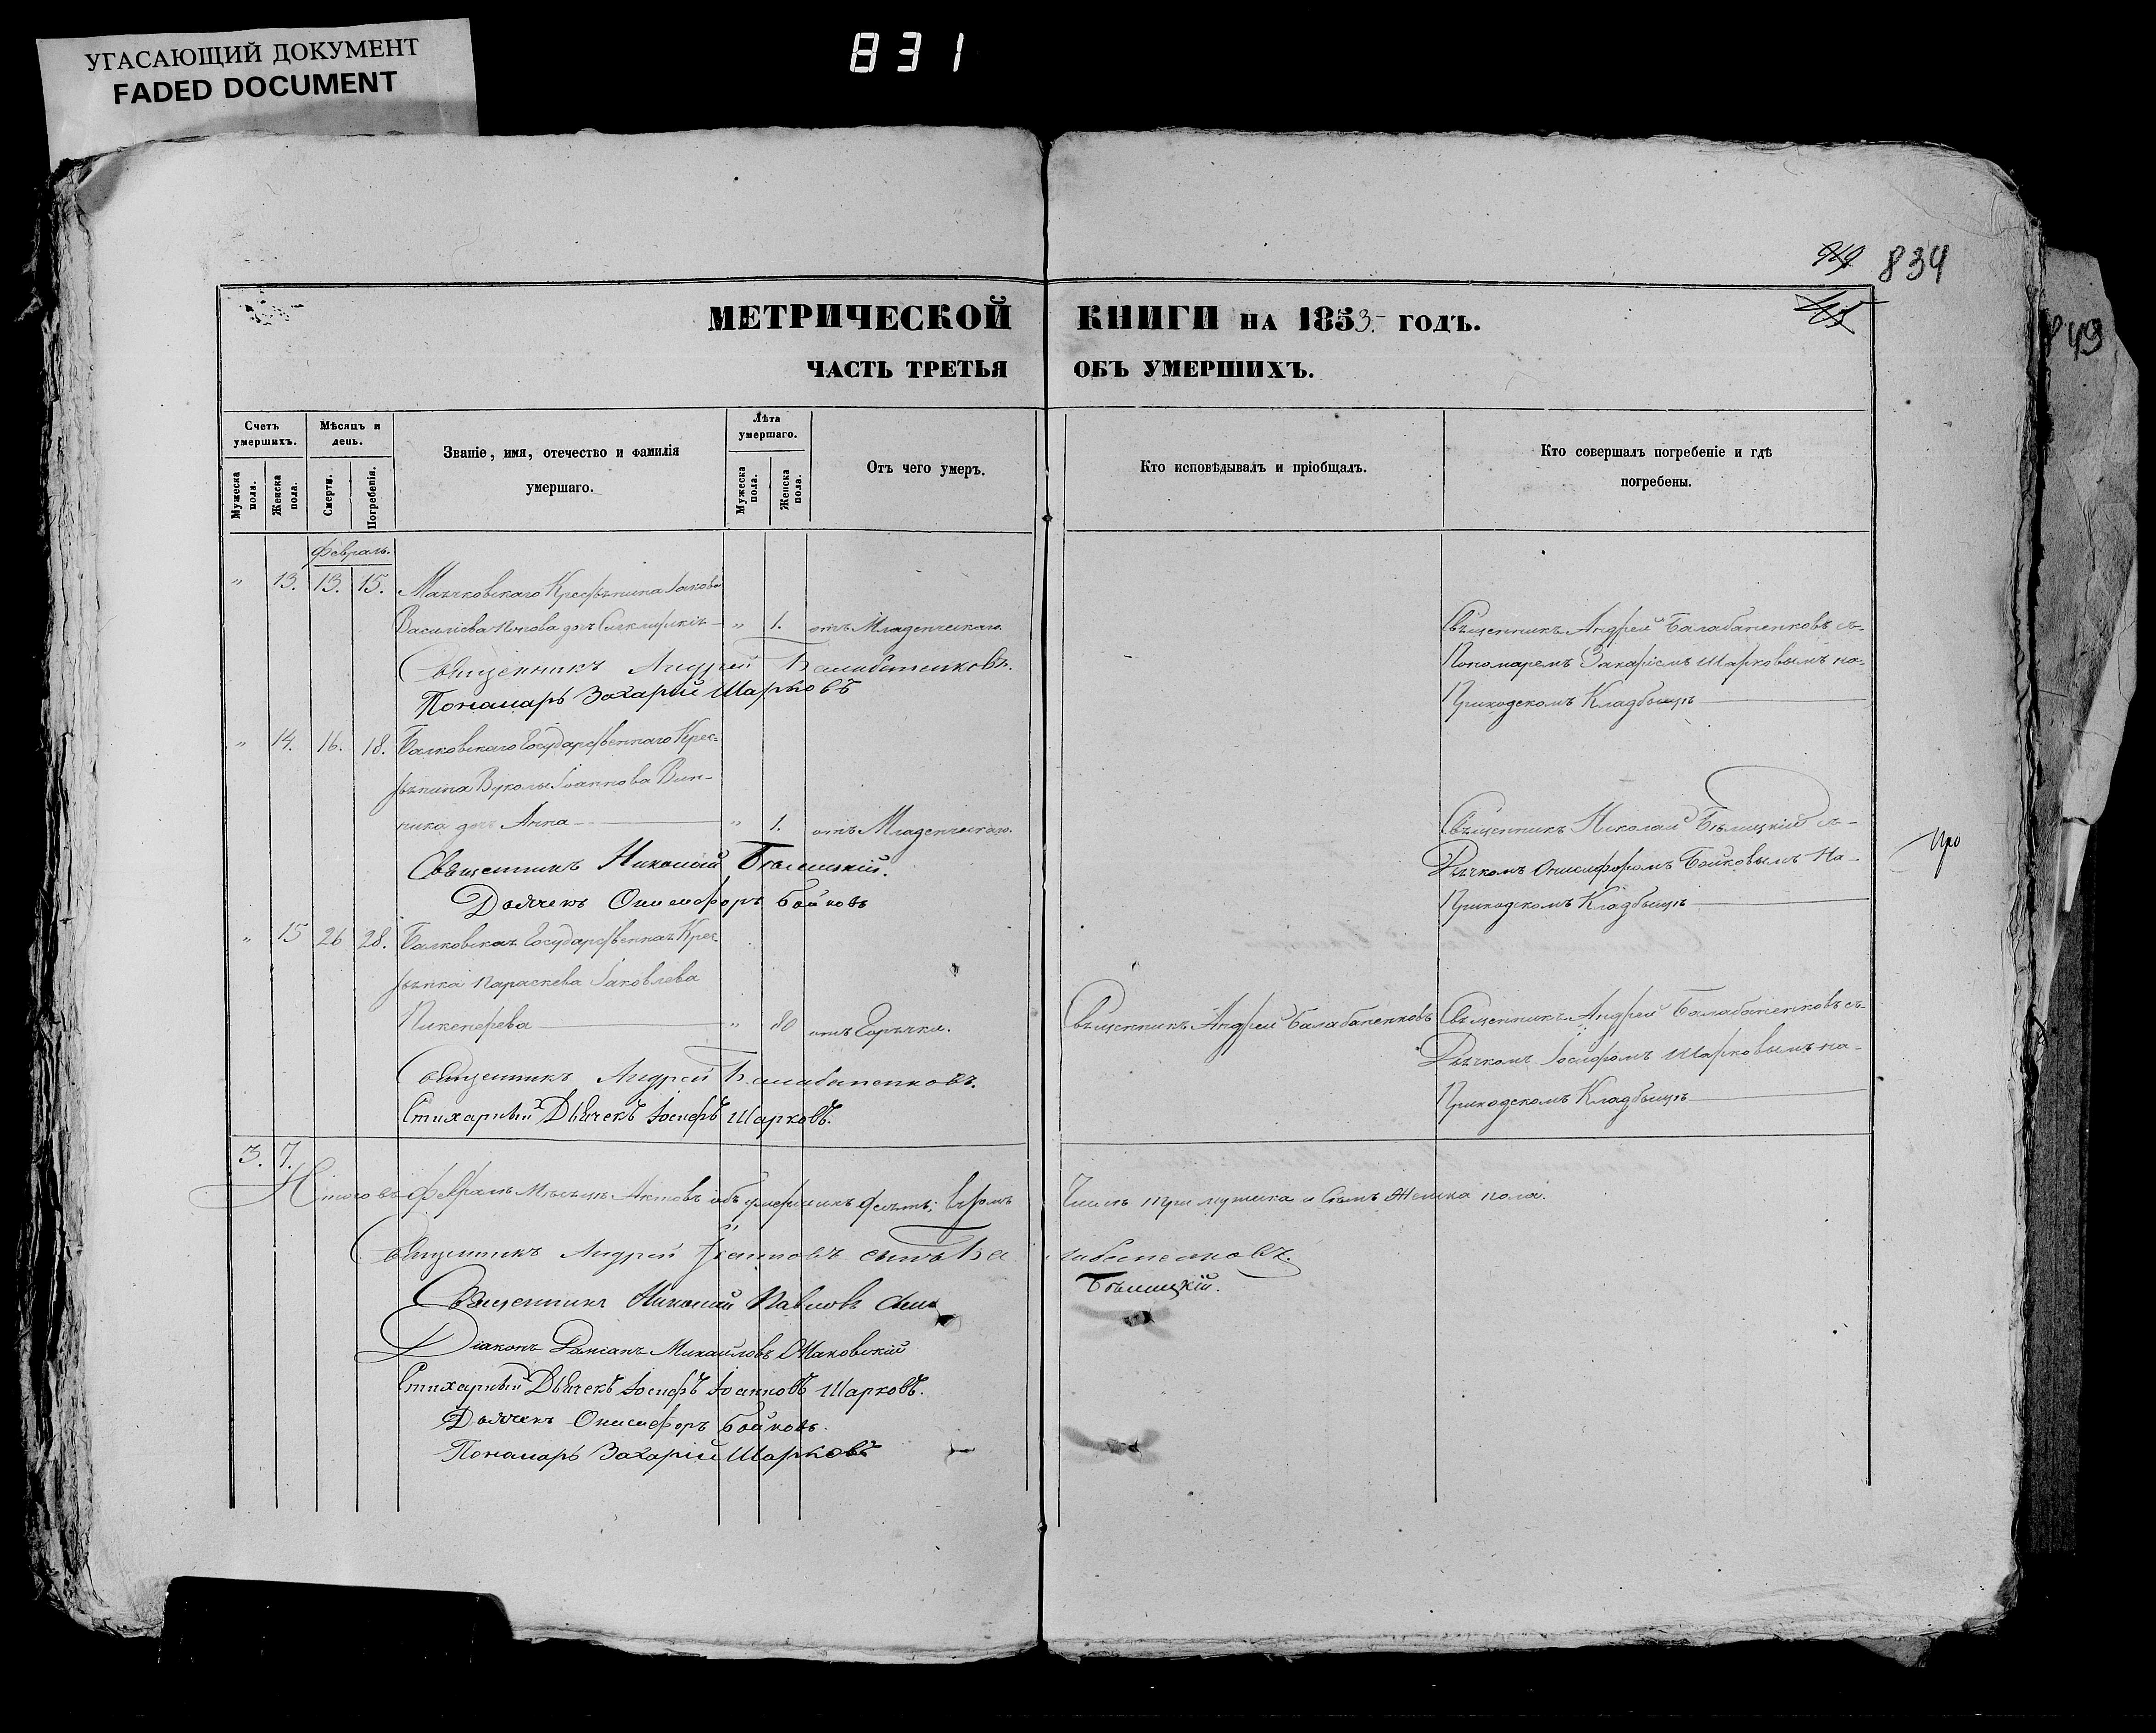 УГАСАЮЩИЙ ДОКУМЕНТ
FADED DOCUMENT
831
834
843
МЕТРИЧЕСКОЙ КНИГИ НА 1853 ГОДЪ.
ЧАСТЬ ТРЕТЬЯ ОБЪ УМЕРШИХЪ.
Счетъ умершихъ.
Мужеска пола.
Женска пола.
Мѣсяцъ и день.
Смерти.
Погребенія.
Званіе, имя, отечество и фамилія умершаго.
Лѣта умершаго.
Мужеска пола.
Женска пола.
Отъ чего умеръ.
Кто исповѣдывалъ и пріобщалъ.
Кто совершалъ погребеніе и гдѣ погребены.
Февраль.
" 13. 13. 15. Маячковскаго Крестьянина Іакова
Василіева Попова дочь " 1. отъ Младенческаго.
Священникъ Андрей Балабаненковъ съ
Пономаремъ Захаріемъ Шарковымъ на
Приходскомъ Кладбищѣ
Священникъ Андрей Балабаненковъ.
Пономарь Захарій Шарковъ
" 14. 16. 18. Балковскаго Государственнаго Крес=
тьянина Вуколы Іоаннова Вин-
ника дочь Анна " 1. отъ Младенческаго.
Священникъ Николай Бѣлицкій съ
Дьячкомъ Онисифоромъ Бойковымъ На
Приходскомъ Кладбищѣ
Священникъ Николай Бѣлицкій.
Дьячекъ Онисифоръ Бойковъ
" 15 26 28. Балковская Государственная Крес
тьянка Параскева Іаковлева
" 80 отъ Горячки.
Священникъ Андрей Балабаненковъ
Священникъ Андрей Балабаненковъ съ
Дьячкомъ Іосифомъ Шарковымъ на
Приходскомъ Кладбищѣ
Священникъ Андрей Балабаненковъ.
Стихарный Дьячекъ Іосифъ Шарковъ.
3. 7.
Итого въ Февралѣ Мѣсяцѣ Актовъ объ умершихъ десять; въ томъ Числѣ три мужеска и Семь Женска пола.
Священникъ Андрей Іоанновъ сынъ Балабаненковъ.
Священникъ Николай Павловъ сынъ Бѣлицкій.
Діаконъ Даміанъ Михаиловъ Маковскій
Стихарный Дьячекъ Іосифъ Іоанновъ Шарковъ.
Дьячекъ Онисифоръ Бойковъ.
Пономарь Захарій Шарковъ